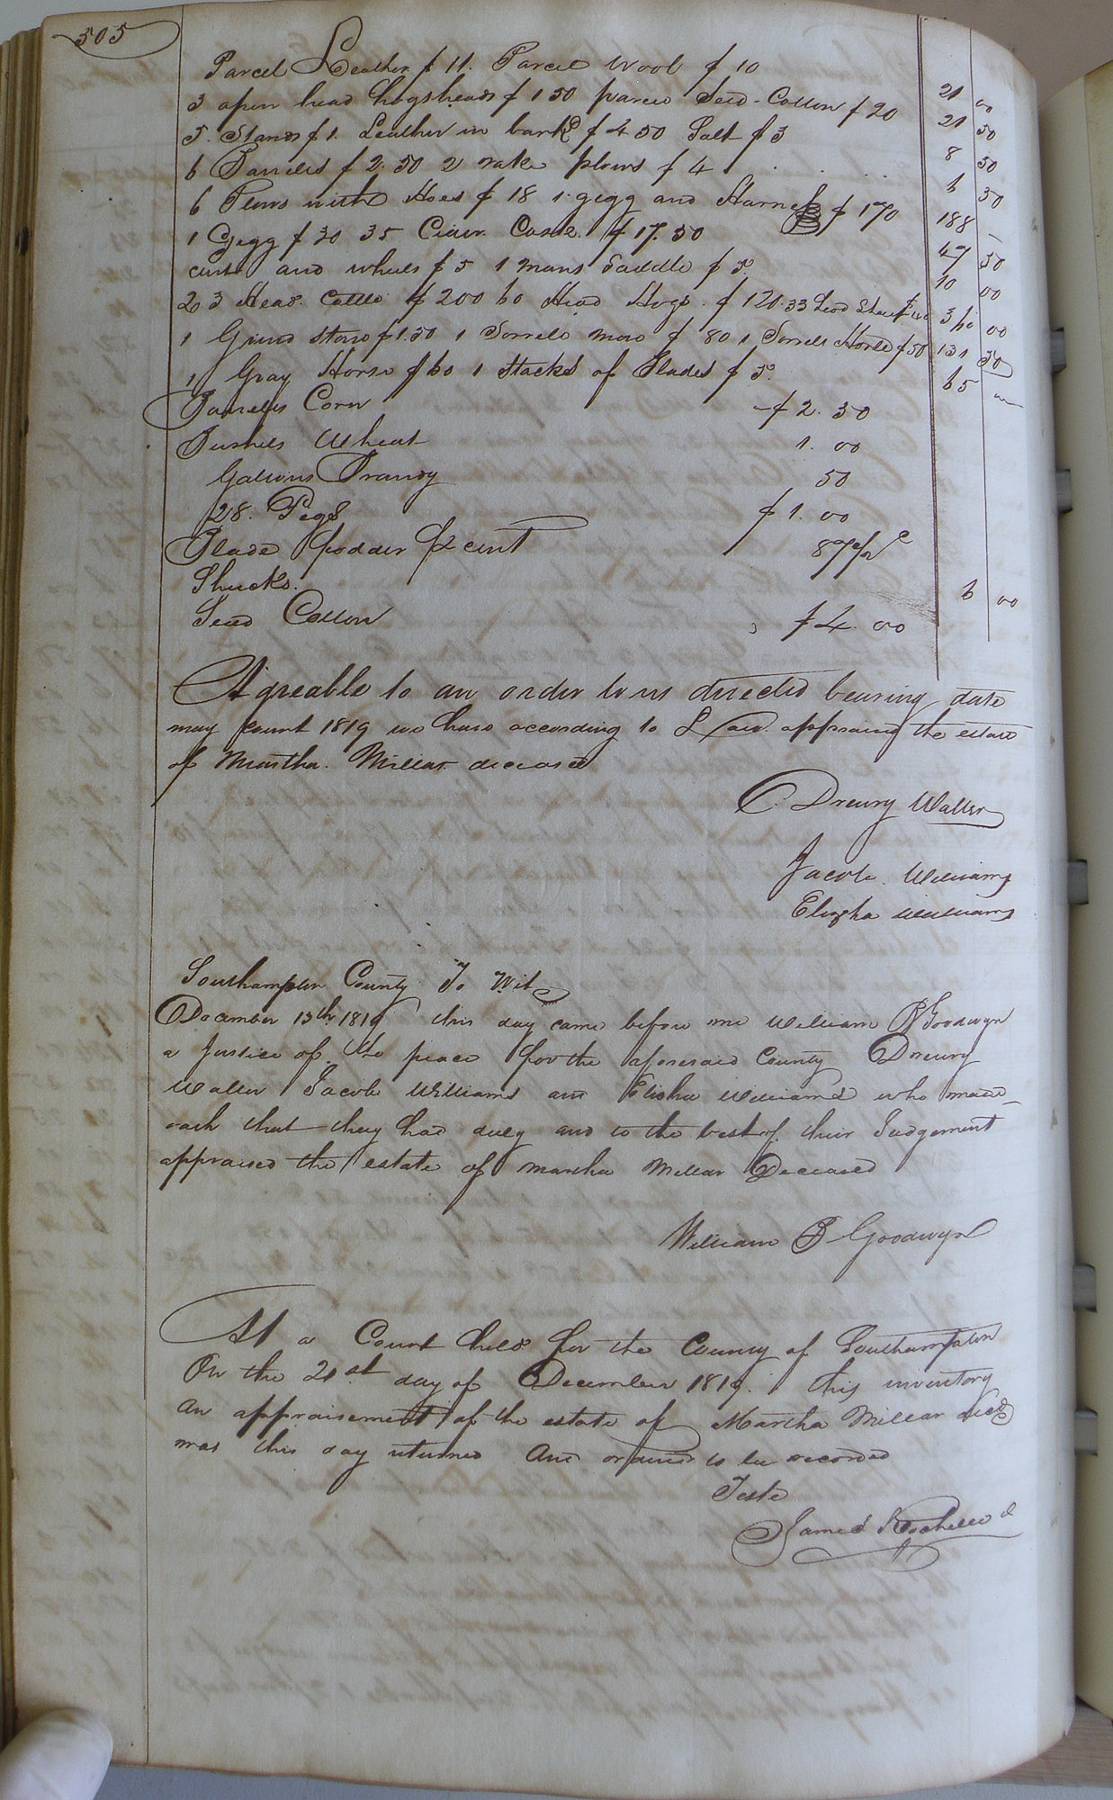 505
Parcel Leather $ 11. Parcel Wool $ 10 21 00
3 open head hogsheads $ 1 50 parcel Seed-Cotton $ 20 21 50
5 Stands $ 1. Leather in bark $ 4 50 Salt $ 3 8 50
6 Barrels $ 2.50 2 rake plows $ 4 6 50
6 Plows with Hoes $ 18 1 gegg and Harness $ 170 188 –
1 Gegg $ 30 35 Cider Cask $ 17.50 47 50
cart and wheels $ 5 1 mans Saddle $ 5. 10 00
23 Head Cattle $ 200 60 Head Hogs $ 120. 33 Head Sheep 3 00
1 Grind stone $ 1.50 1 Sorrell mare $ 80 1 Sorrell Horse $ 50 131 50
1 Gray Horse $ 60 1 Stacks of Blades $ 5. 65
Barrells Corn $ 2. 50
Bushels Wheat 1. 00
Gallons Brandy 50
28. Pegs $ 1. 00
Blade fodder cent 87½
Shucks. 6 00
Seed Cotton $ 4. 00
Agreable to an order to us directed bearing date
may Court 1819 we have according to Law appraised the estate
of Martha. Millar deceased
Drewry Waller
Jacob. Williams
Elisha Williams
Southampton County To Wit
December 13th 1819 this day came before me William B Goodwyn
a Justice of the peace for the aforesaid County Drewry
Waller Jacob Williams and Elisha Williams who made
oath that they had duly and to the best of their Judgement
appraised the estate of Martha Millar Deceased
William B Goodwyn
At a Court held for the County of Southampton
On the 21st day of December 1819. this inventory
an appraisement of the estate of Martha Millar decd
was this day returned And ordered to be recorded
Teste
James Rochelle